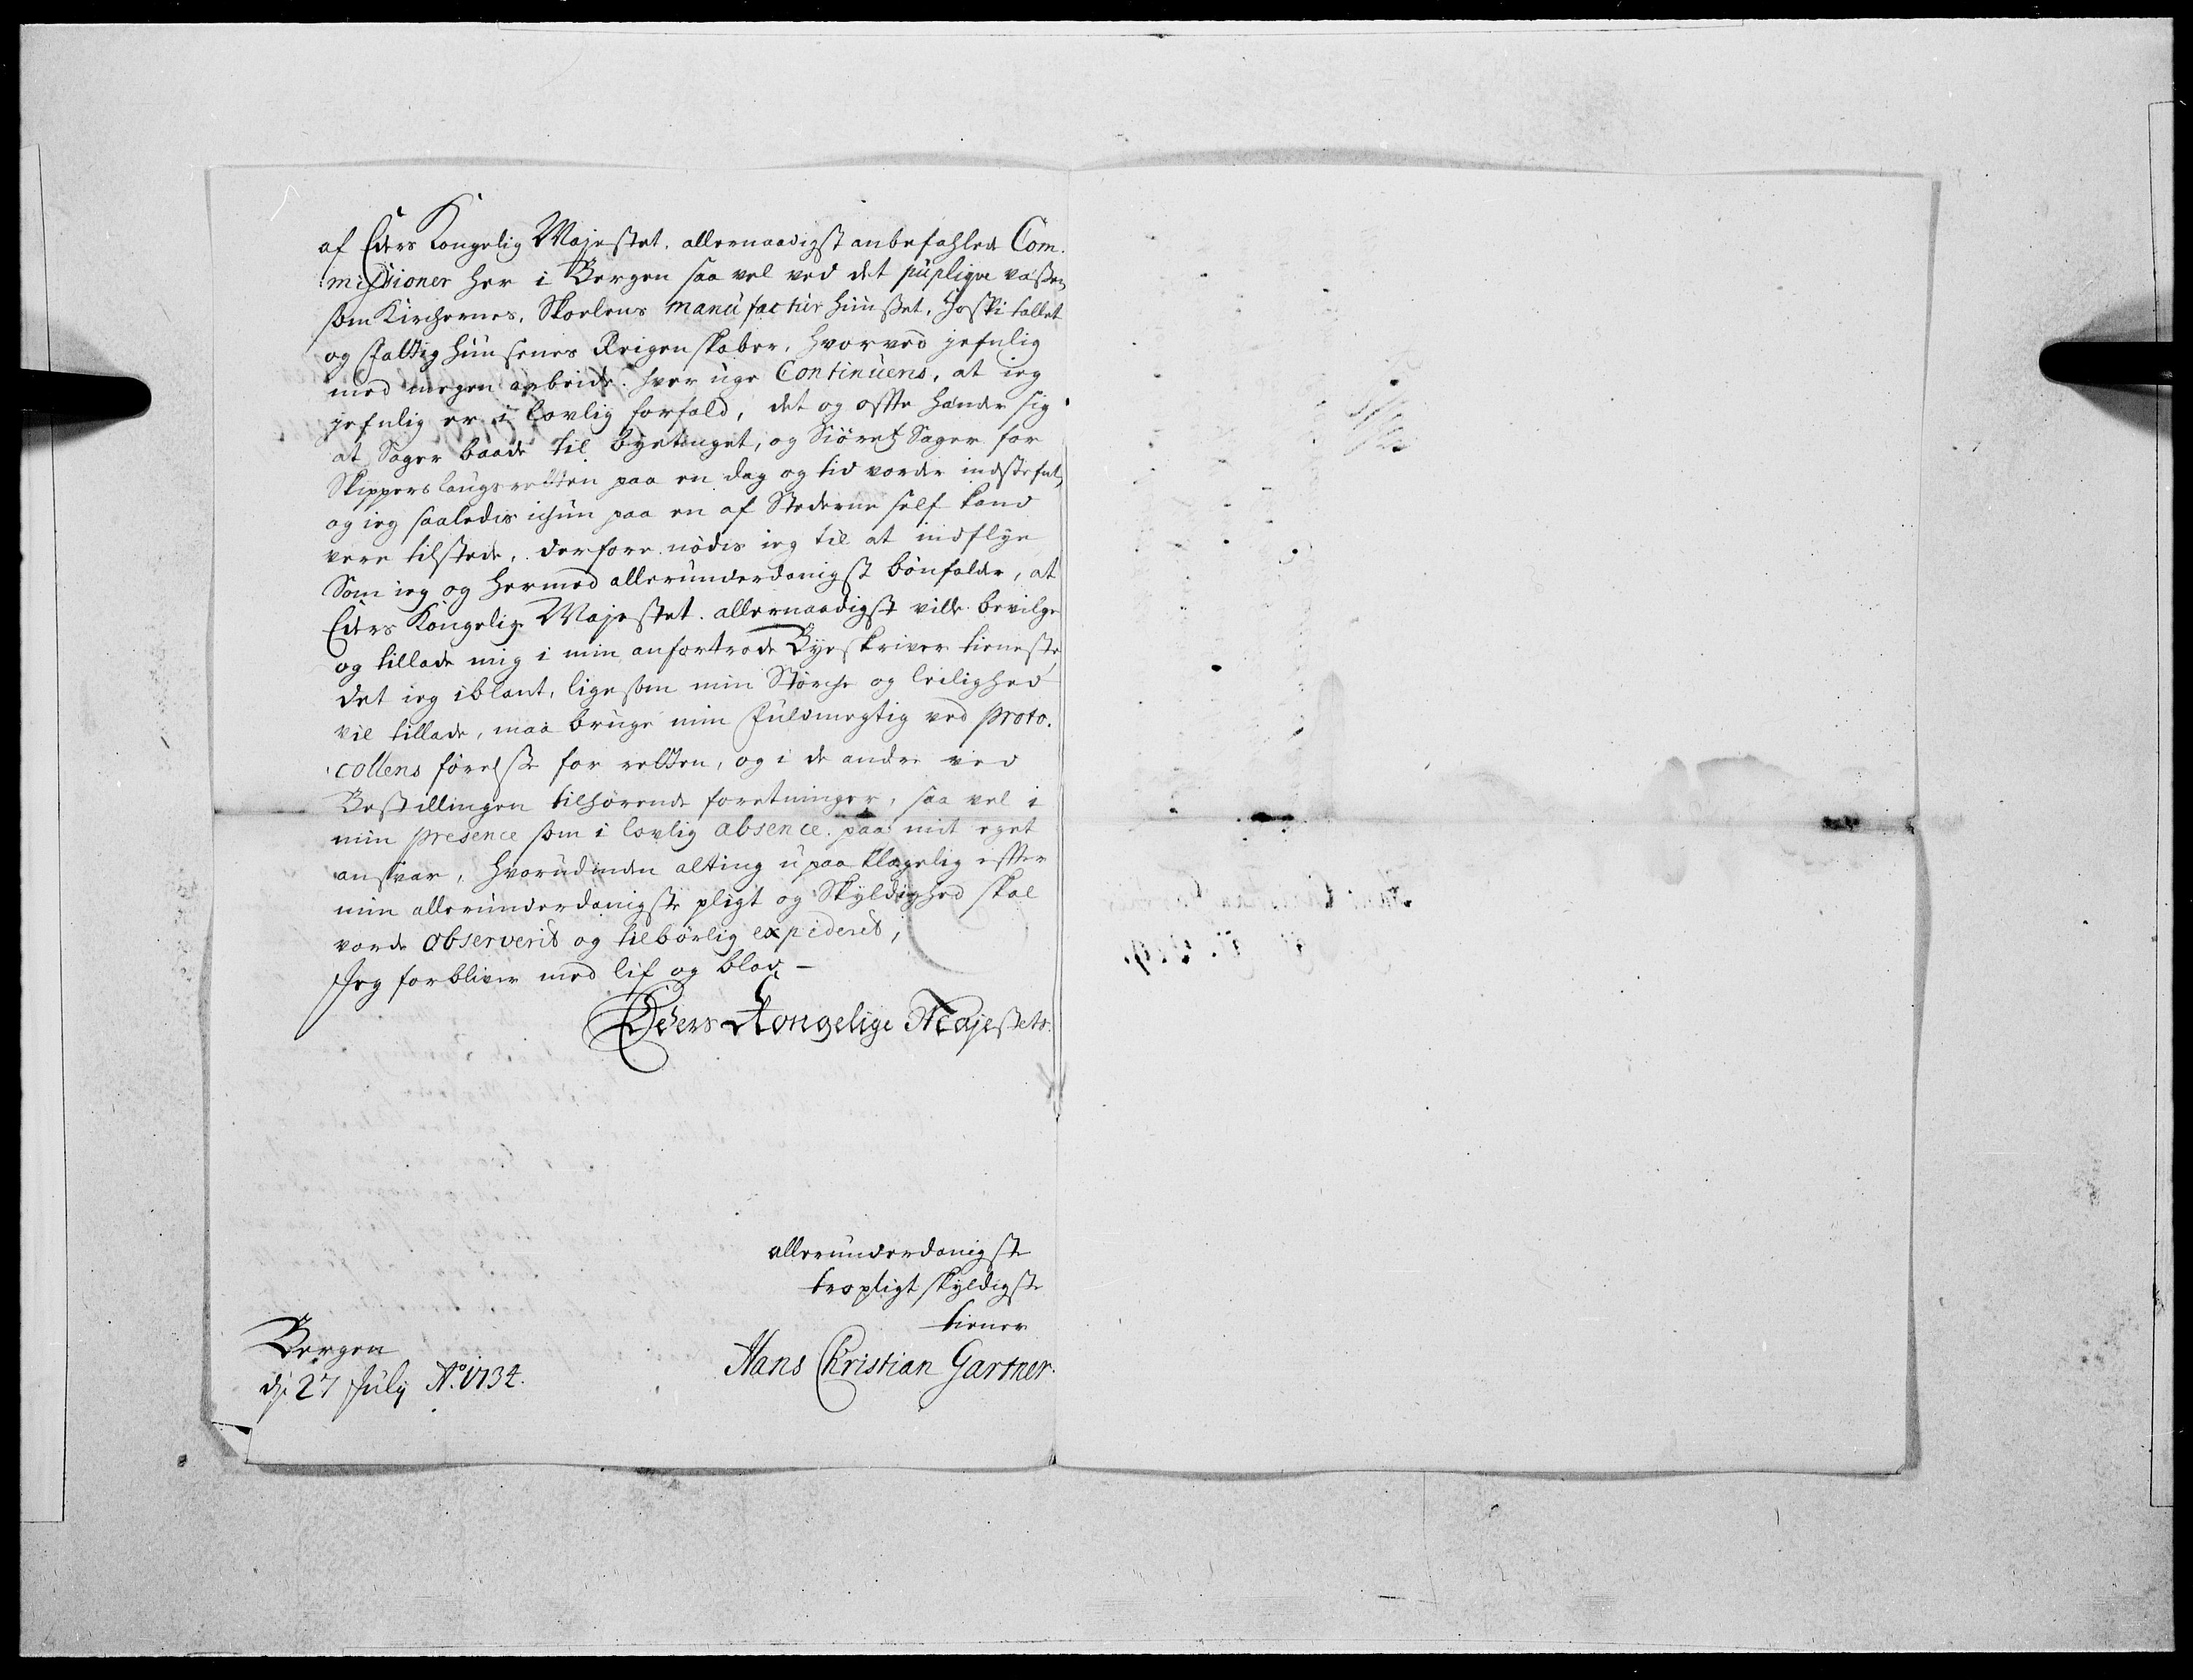 af Eders Kongelig Majestet. allernaadigst anbefahlede Com.
missioner her i Bergen saa vel ved det puplique væßen
som Kirchernes, Skoelens manufactur huußet, Hospitallet
og Fattighuusenes Reigenskaber, hvorved jefnlig
med megen arbeide hver uge Continuens, at ieg
jefnlig er i lovlig forfald, det og offte hænder sig
at Sager baade til byetinget, og Siöretz Sager for
Skipperslaugsretten paa en dag og tid vorder indstefnt,
og ieg saaledis ichun paa en af Stederne self kand
vere tilstede, derfore nödis ieg til at indflye
Som ieg og hermed allerunderdanigst bönfalder, at
Eders Kongelig Majestet. allernaadigst ville bevilge
og tillade mig i min anfortrode Byeskriver tieneste
det ieg iblant, ligesom min Störche og leilighed
vil tillade, maa bruge min Fuldmegtig ved proto.
collens förelse for retten, og i de andre ved
Bestillingen tilhörende foretninger, saa vel i
min presence som i lovlig absence. paa mit eget
ansvar, hvorudinden alting upaaklagelig effter
min allerunderdanigste pligt og Skyldighed skal
vorde observerit og tilbörlig expiderit,
Jeg forbliver med lif og blod
Eders Kongelige Majestets.
allerunderdanigste
tropligt skyldigste
tiener
Bergen
Hans Christian Gartner.
dj. 27 July Ao. 1734.